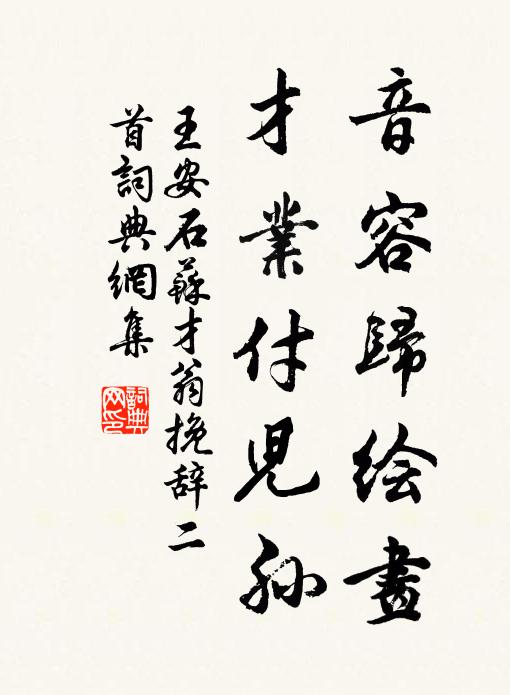 音容歸绘畫
才業付児孙
王安石蘇才翁挽辞二
首詞典網集
詞典
网印